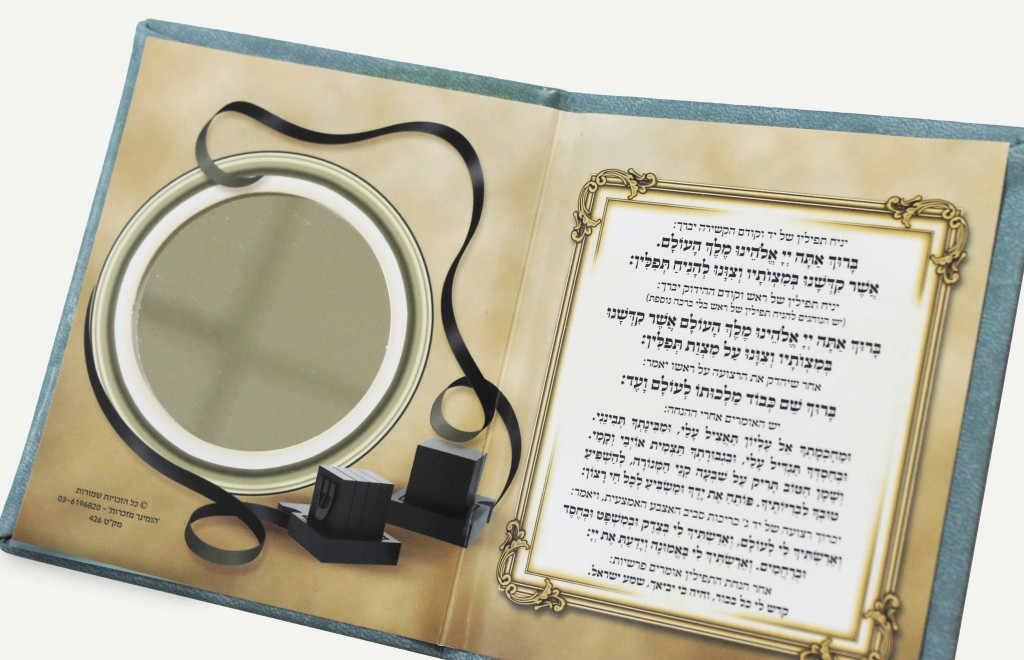 יניח תפילין של יד וקודם הקשירה יברך:
בָּרוּךְ אַתָּה יְיָ אֱלֹהֵינוּ מֶלֶךְ הָעוֹלָם.
אֲשֶׁר קִדְּשָׁנוּ בְּמִצְוֹתָיו וְצִוָּנוּ לְהָנִיחַ תְּפִלִּין:
יניח תפילין של ראש וקודם ההידוק יברך:
(יש הנוהגים להניח תפילין של ראש בלי ברכה נוספת)
בָּרוּךְ אַתָּה יְיָ אֱלֹהֵינוּ מֶלֶךְ הָעוֹלָם אֲשֶׁר קִדְּשָׁנוּ
בְּמִצְוֹתָיו וְצִוָּנוּ עַל מִצְוַת תְּפִלִּין:
אחר שיהדק את הרצועה על ראשו יאמר:
בָּרוּךְ שֵׁם כְּבוֹד מַלְכוּתוֹ לְעוֹלָם וָעֶד:
יש האומרים אחרי ההנחה:
וּמֵחָכְמָתְךָ אֵל עֶלְיוֹן תַּאֲצִיל עָלַי, וּמִבִּינָתְךָ תְּבִינֵנִי.
וּבְחַסְדְּךָ תַּגְדִּיל עָלַי. וּבִגְבוּרָתְךָ תַּצְמִית אוֹיְבַי וְקָמַי.
וְשֶׁמֶן הַטּוֹב תָּרִיק עַל שִׁבְעָה קְנֵי הַמְּנוֹרָה, לְהַשְׁפִּיעַ
טוּבְךָ לִבְרִיּוֹתֶיךָ. פּוֹתֵחַ אֶת יָדֶךָ וּמַשְׂבִּיעַ לְכָל חַי רָצוֹן:
יכרוך רצועה של יד ג' כריכות סביב האצבע האמצעית, ויאמר:
וְאֵרַשְׂתִּיךְ לִי לְעוֹלָם, וְאֵרַשְׂתִּיךְ לִי בְּצֶדֶק וּבְמִשְׁפָּט וּבְחֶסֶד
וּבְרַחֲמִים. וְאֵרַשְׂתִּיךְ לִי בֶּאֱמוּנָה וְיָדַעַתְּ אֶת יְיָ:
אחר הנחת התפילין אומרים פרשיות:
קדש לי כל בכור, והיה כי יביאך, שמע ישראל.
© כל הזכויות שמורות
'הומינר מזכרות' - 03-6196820
מק"ט 426